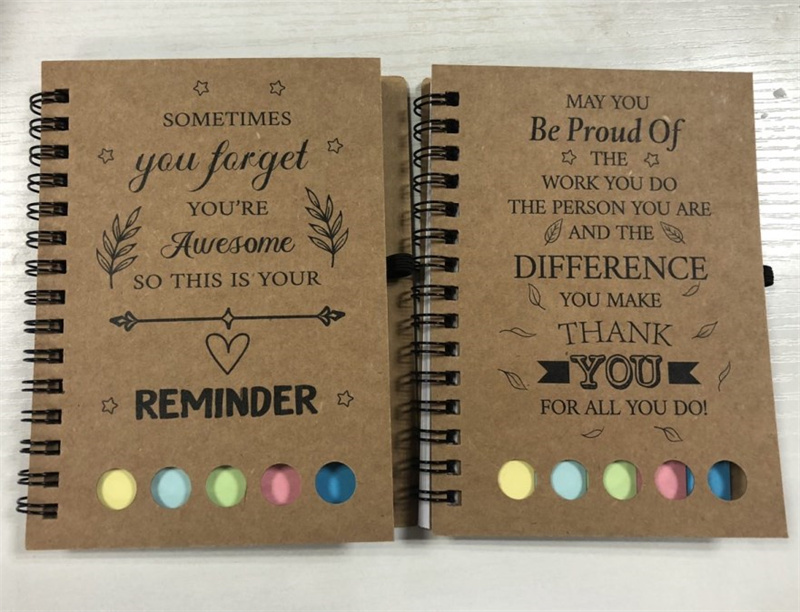 SOMETIMES
you forget
YOU'RE
Awesome
SO THIS IS YOUR
REMINDER
MAY YOU
Be Proud Of
THE
WORK YOU DO
THE PERSON YOU ARE
AND THE
DIFFERENCE
YOU MAKE
THANK
YOU
FOR ALL YOU DO!